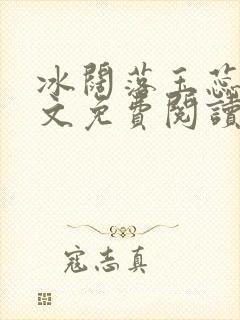 冰闊落玉蕊
文免費閱讀
寇志真